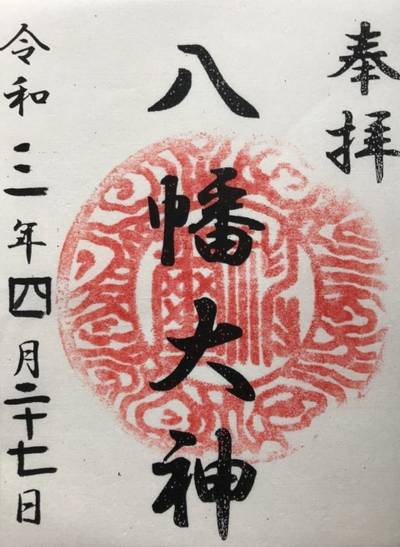 奉拝
八幡大神
令和三年四月二十七日